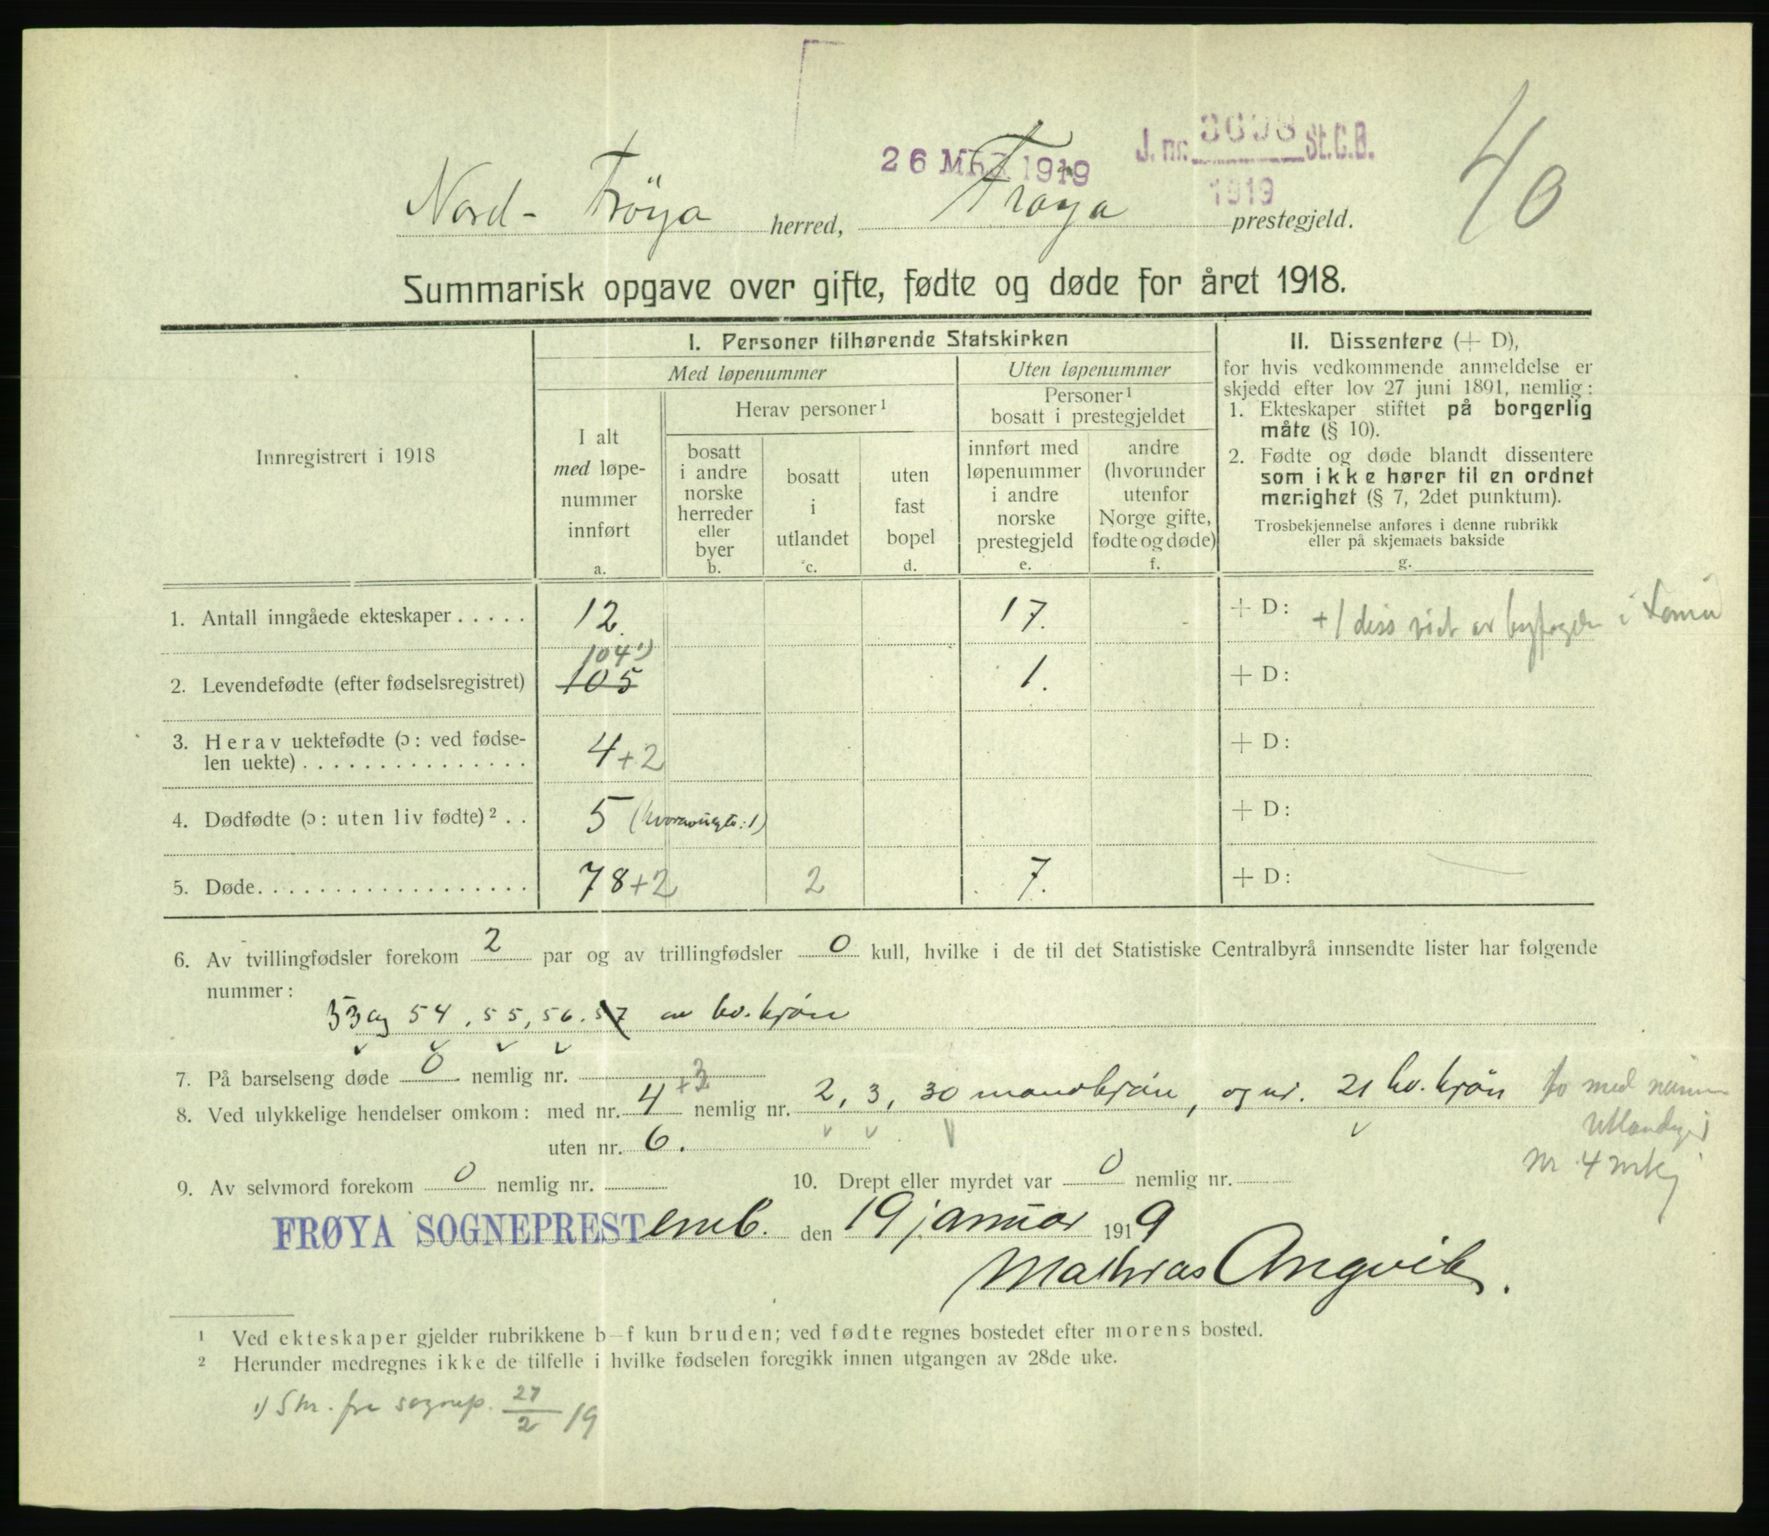 26 MAR 1919
J. nr. 3698 St.C.B.
1919
40
Nord-Frøya herred, Frøya prestegjeld.
Summarisk opgave over gifte, fødte og døde for året 1918.
Innregistrert i 1918
I. Personer tilhørende Statskirken
Med løpenummer
Uten løpenummer
I alt
med løpe-
nummer
innført
a.
Herav personer ¹
bosatt
i andre
norske
herreder
eller
byer
b.
bosatt
i
utlandet
c.
uten
fast
bopel
d.
Personer ¹
bosatt i prestegjeldet
innført med
løpenummer
i andre
norske
prestegjeld
e.
andre
(hvorunder
utenfor
Norge gifte,
fødte og døde)
f.
II. Dissentere (+ D),
for hvis vedkommende anmeldelse er
skjedd efter lov 27 juni 1891, nemlig:
1. Ekteskaper stiftet på borgerlig
måte (§ 10).
2. Fødte og døde blandt dissentere
som ikke hører til en ordnet
menighet (§ 7, 2det punktum).
Trosbekjennelse anføres i denne rubrikk
eller på skjemaets bakside
g.
1. Antall inngåede ekteskaper . . . . . 12. 17. + D: +1 diss viet av byfogden i
104 ¹)
2. Levendefødte (efter fødselsregistret) 105 1. + D:
3. Herav uektefødte (ɔ: ved fødse-
len uekte) . . . . . . . . . . . . . . . 4 + 2 + D:
4. Dødfødte (ɔ: uten liv fødte) ² . . 5 (hvorav uegte: 1) + D:
5. Døde . . . . . . . . . . . . . . . . . . 78 + 2 2 7. + D:
6. Av tvillingfødsler forekom 2 par og av trillingfødsler 0 kull, hvilke i de til det Statistiske Centralbyrå innsendte lister har følgende
nummer:
53 og 54, 55, 56. 57 av kv. kjøn
7. På barselseng døde 0 nemlig nr.
8. Ved ulykkelige hendelser omkom: med nr. 4 +3 nemlig nr. 2, 3, 30 mandkjøn, og nr. 21 kv. kjøn to med
nr 4 mkj
uten nr. 6.
9. Av selvmord forekom 0 nemlig nr. 10. Drept eller myrdet var 0 nemlig nr.
FRØYA SOGNEPREST emb. den 19 januar 1919
Mathias Angvik.
¹ Ved ekteskaper gjelder rubrikkene b–f kun bruden; ved fødte regnes bostedet efter morens bosted.
² Herunder medregnes ikke de tilfelle i hvilke fødselen foregikk innen utgangen av 28de uke.
¹) Skr. fra sognep. 27/2 19